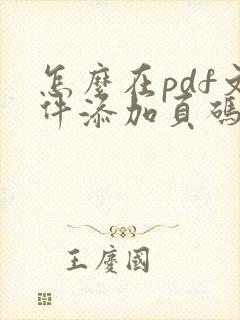 怎麼在pdf文
件添加頁碼
王慶國